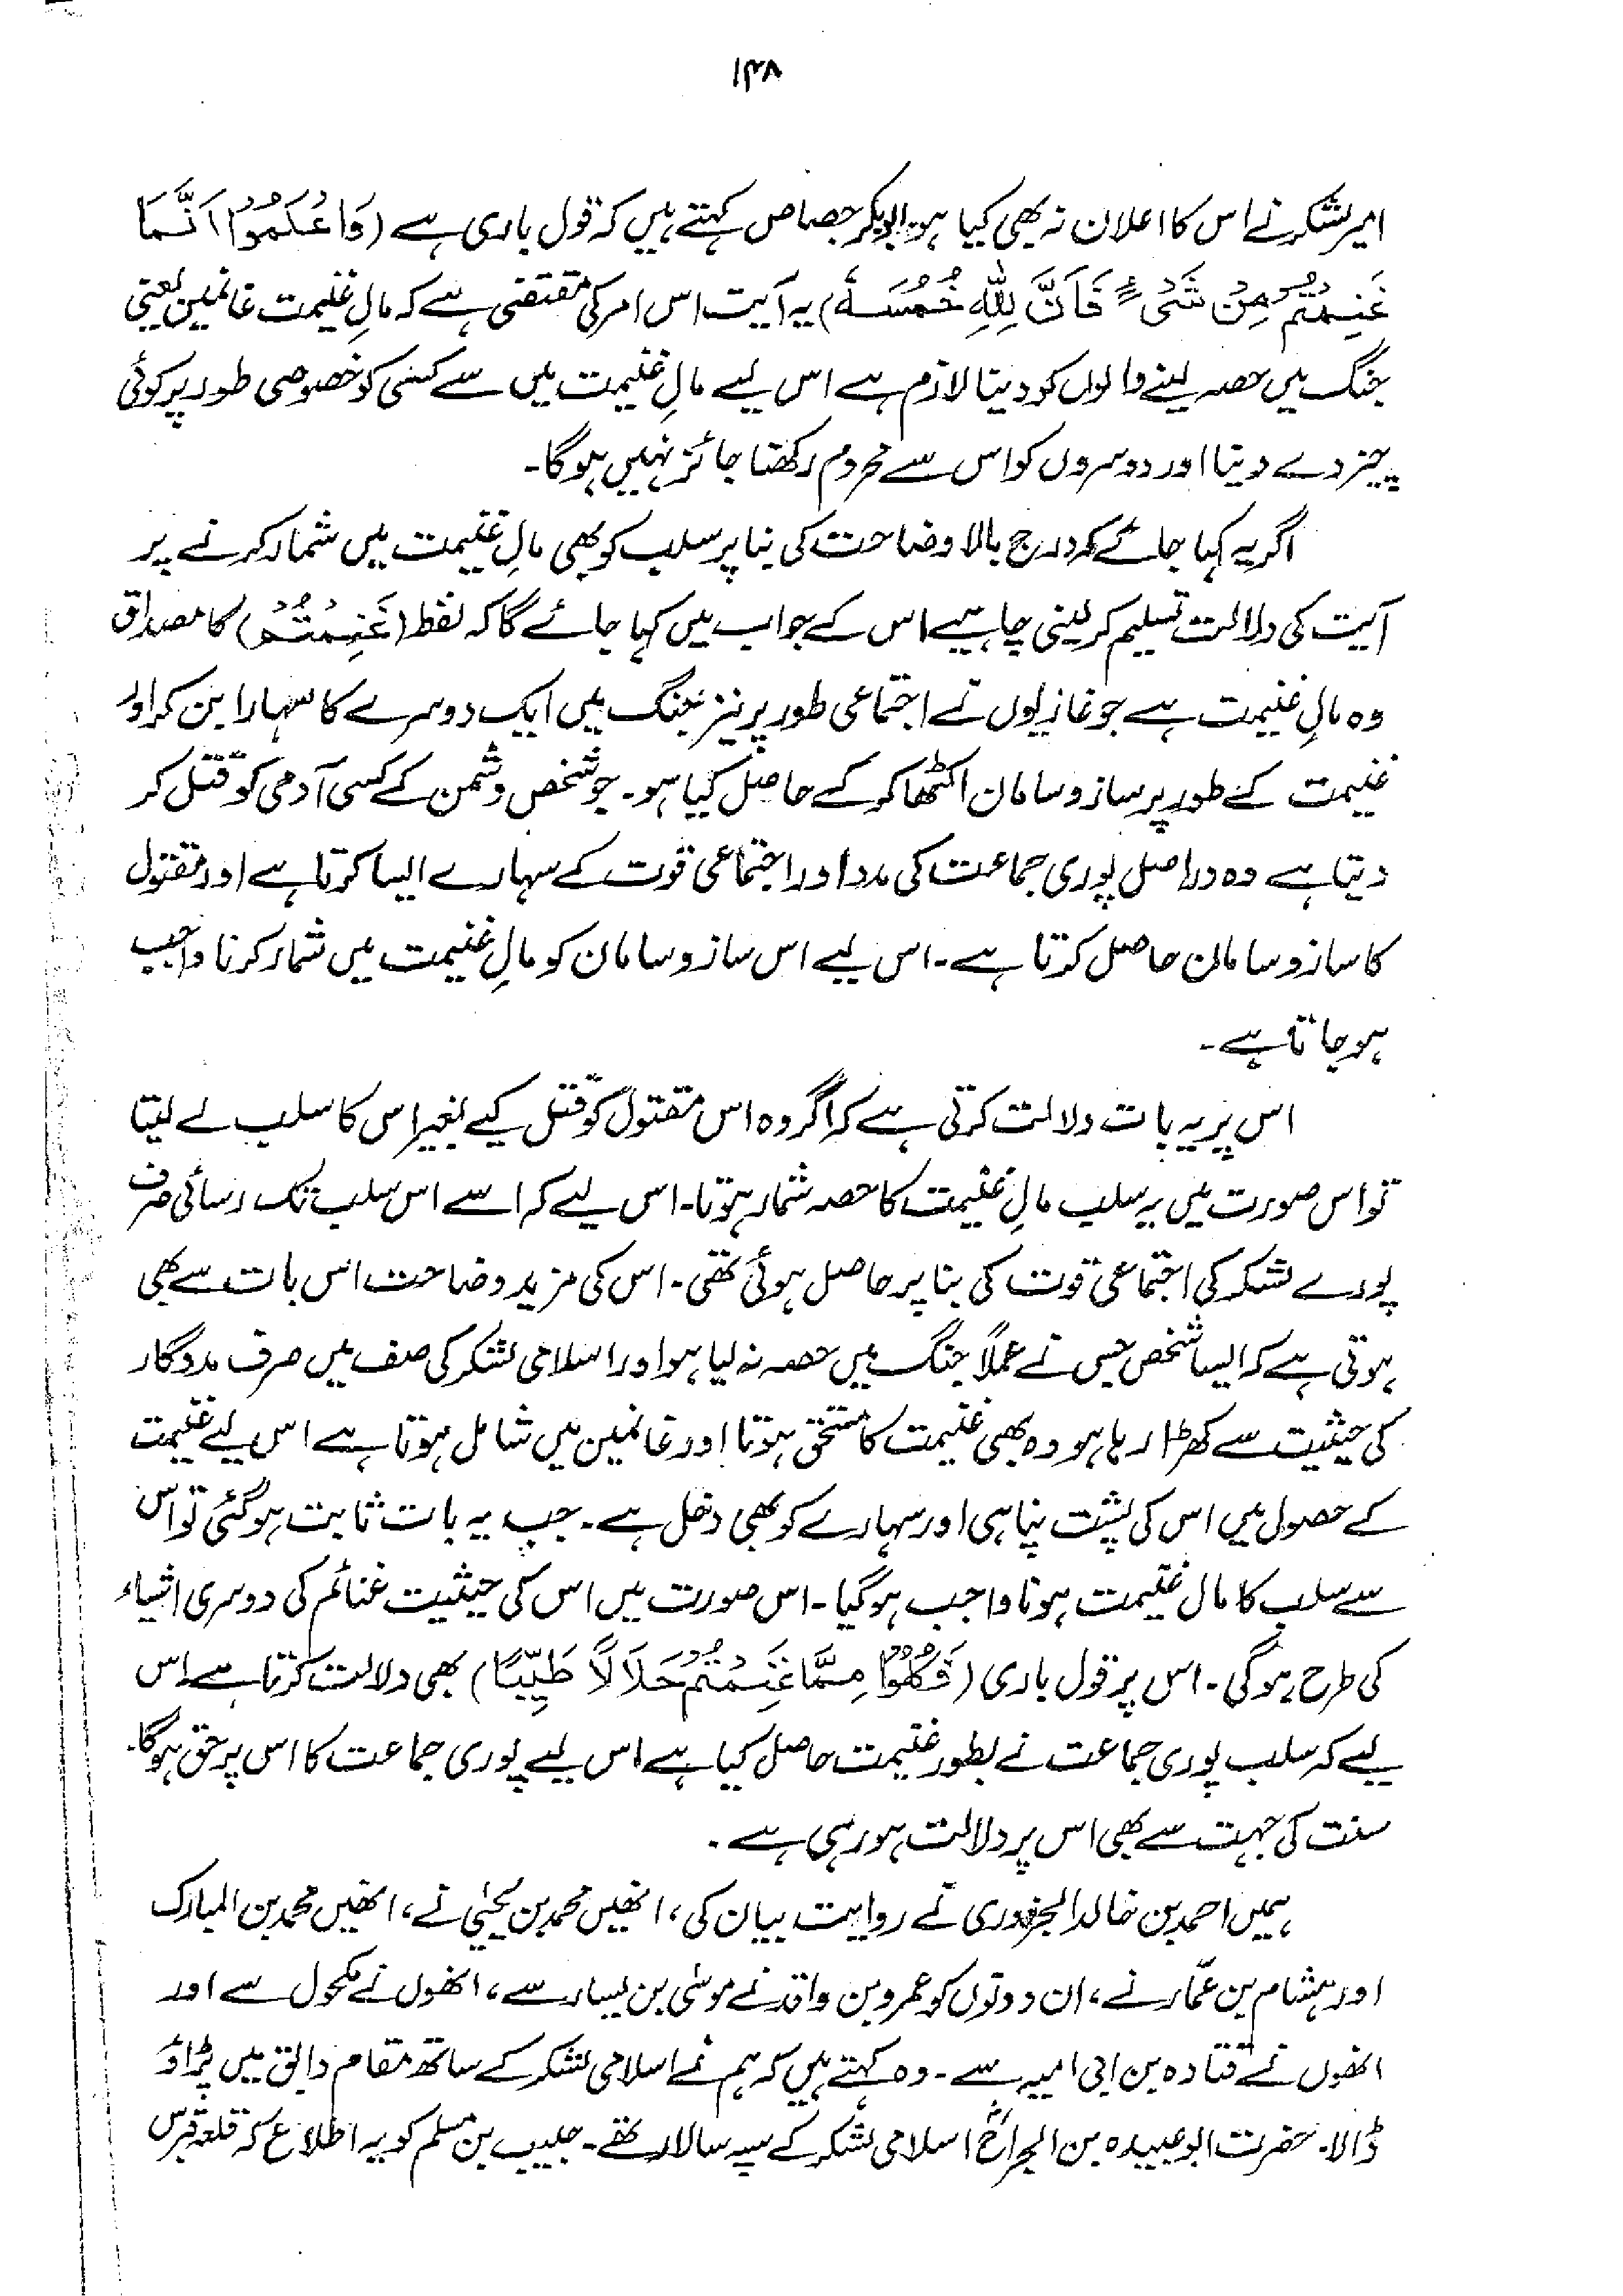 ۱۴۸
امیر لشکر نے اس کا اعلان نہ بھی کیا ہو۔ ابوبکر جصاص کہتے ہیں کہ قول باری ہے (وَاعْلَمُوْا اَنَّمَا
غَنِمْتُمْ مِنْ شَیْءٍ فَاَنَّ لِلّٰہِ خُمُسَہٗ) یہ آیت اس امر کی مقتضی ہے کہ مالِ غنیمت غانمین یعنی
جنگ میں حصہ لینے والوں کو دینا لازم ہے اس لیے مالِ غنیمت میں سے کسی کو خصوصی طور پر کوئی
چیز دے دینا اور دوسروں کو اس سے محروم رکھنا جائز نہیں ہوگا۔
اگر یہ کہا جائے کہ درج بالا وضاحت کی بنا پر سلب کو بھی مالِ غنیمت میں شمار کرنے پر
آیت کی دلالت تسلیم کر لینی چاہیے اس کے جواب میں کہا جائے گا کہ لفظ (غَنِمْتُمْ) کا مصداق
وہ مالِ غنیمت ہے جو غازیوں نے اجتماعی طور پر نیز جنگ میں ایک دوسرے کا سہارا بن کر اور
غنیمت کے طور پر ساز و سامان اکٹھا کر کے حاصل کیا ہو۔ جو شخص دشمن کے کسی آدمی کو قتل کر
دیتا ہے وہ دراصل پوری جماعت کی مدد اور اجتماعی قوت کے سہارے ایسا کرتا ہے اور مقتول
کا ساز و سامان حاصل کرتا ہے۔ اس لیے اس ساز و سامان کو مالِ غنیمت میں شمار کرنا واجب
ہو جاتا ہے۔
اس پر یہ بات دلالت کرتی ہے کہ اگر وہ اس مقتول کو قتل کیے بغیر اس کا سلب لے لیتا
تو اس صورت میں یہ سلب مالِ غنیمت کا حصہ شمار ہوتا۔ اس لیے کہ اسے اس سلب تک رسائی صرف
پورے لشکر کی اجتماعی قوت کی بنا پر حاصل ہوئی تھی۔ اس کی مزید وضاحت اس بات سے بھی
ہوتی ہے کہ ایسا شخص جس نے عملاً جنگ میں حصہ نہ لیا ہو اور اسلامی لشکر کی صف میں صرف مددگار
کی حیثیت سے کھڑا رہا ہو وہ بھی غنیمت کا مستحق ہوتا اور غانمین میں شامل ہوتا ہے اس لیے غنیمت
کے حصول میں اس کی پشت پناہی اور سہارے کو بھی دخل ہے۔ جب یہ بات ثابت ہو گئی تو اس
سے سلب کا مال غنیمت ہونا واجب ہو گیا۔ اس صورت میں اس کی حیثیت غنائم کی دوسری اشیاء
کی طرح ہو گی۔ اس پر قول باری (فَکُلُوْا مِمَّا غَنِمْتُمْ حَلَالًا طَیِّبًا) بھی دلالت کرتا ہے اس
لیے کہ سلب پوری جماعت نے بطور غنیمت حاصل کیا ہے اس لیے پوری جماعت کا اس پر حق ہو گا۔
سنت کی جہت سے بھی اس پر دلالت ہو رہی ہے۔
ہمیں احمد بن خالد الجزوری نے روایت بیان کی، انھیں محمد بن یحییٰ نے، انھیں محمد بن المبارک
اور ہشام بن عمّار نے، ان دونوں کو عمرو بن واقد نے موسٰی بن یسار سے، انھوں نے مکحول سے اور
انھوں نے قتادہ بن ابی امیہ سے۔ وہ کہتے ہیں کہ ہم نے اسلامی لشکر کے ساتھ مقام دابق میں پڑاؤ
ڈالا۔ حضرت ابو عبیدہ بن الجراحؓ اسلامی لشکر کے سپہ سالار تھے۔ حبیب بن مسلم کو یہ اطلاع کہ قلعہ قبرس